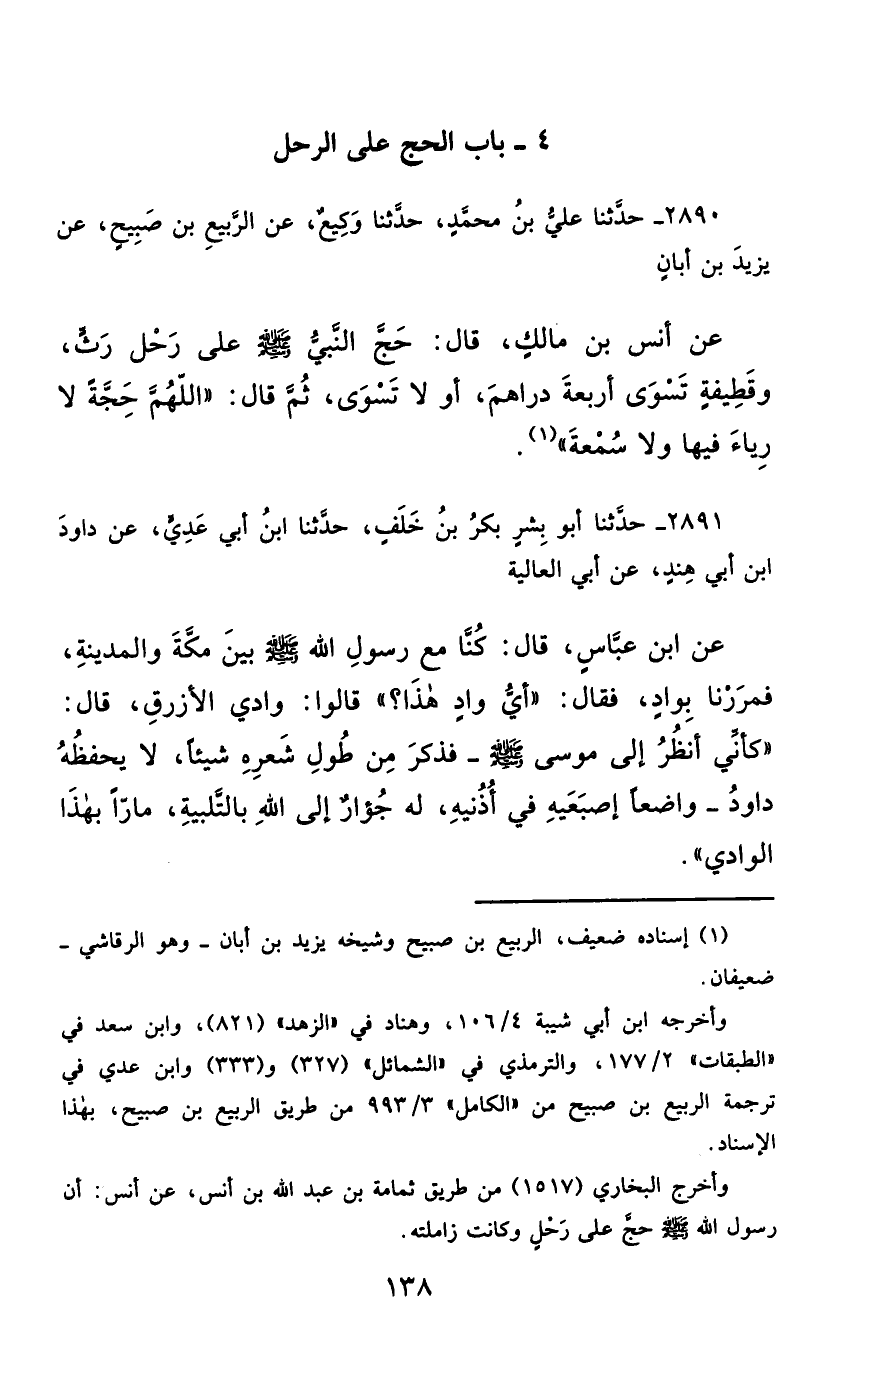 ٤ - باب الحج على الرحل
٢٨٩٠- حدَّثنا عليُّ بنُ محمَّدٍ، حدَّثنا وَكِيعٌ، عن الرَّبيعِ بن صَبِيحٍ، عن
يزيدَ بن أبانٍ
عن أنس بن مالكٍ، قال: حَجَّ النَّبيُّ ﷺ على رَحْل رَثٍّ،
وقَطِيفةٍ تَسْوَى أربعةَ دراهمَ، أو لا تَسْوَى، ثُمَّ قال: «اللّهُمَّ حَجَّةً لا
رِياءَ فيها ولا سُمْعةَ»(١).
٢٨٩١- حدَّثنا أبو بِشرٍ بكرُ بنُ خَلَفٍ، حدَّثنا ابنُ أبي عَدِيٍّ، عن داودَ
ابن أبي هِندٍ، عن أبي العالية
عن ابن عبَّاسٍ، قال: كُنَّا مع رسولِ الله ﷺ بينَ مكَّةَ والمدينةِ،
فمرَرْنا بِوادٍ، فقال: «أيُّ وادٍ هٰذَا؟» قالوا: وادي الأزرقِ، قال:
«كأنِّي أنظُرُ إلى موسى ﷺ - فذكرَ مِن طُولِ شَعرِهِ شيئاً، لا يحفظُهُ
داودُ - واضعاً إصبَعَيهِ في أُذُنيهِ، له جُؤارٌ إلى اللهِ بالتَّلبيةِ، مارّاً بهٰذَا
الوادي».
(١) إسناده ضعيف، الربيع بن صبيح وشيخه يزيد بن أبان - وهو الرقاشي -
ضعيفان.
وأخرجه ابن أبي شيبة ١٠٦/٤، وهناد في «الزهد» (٨٢١)، وابن سعد في
«الطبقات» ١٧٧/٢، والترمذي في «الشمائل» (٣٢٧) و(٣٣٣) وابن عدي في
ترجمة الربيع بن صبيح من «الكامل» ٩٩٣/٣ من طريق الربيع بن صبيح، بهٰذا
الإسناد.
وأخرج البخاري (١٥١٧) من طريق ثمامة بن عبد الله بن أنس، عن أنس: أن
رسول الله ﷺ حجَّ على رَحْلٍ وكانت زاملته.
١٣٨